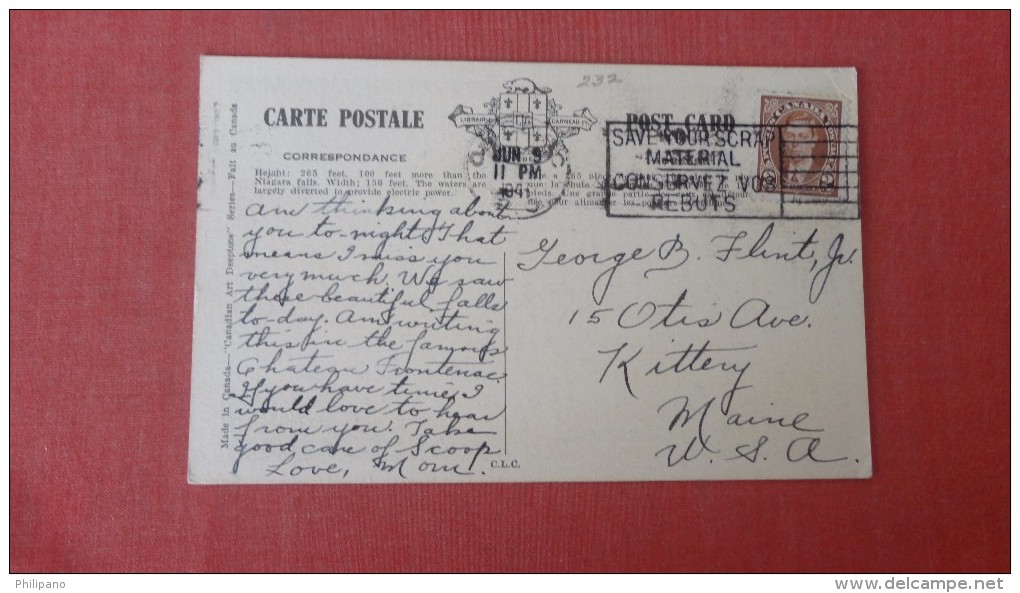 232
CARTE POSTALE
POST CARD
CORRESPONDANCE
LIBRAIRIE GARNEAU
JUN 9
11 PM
1941
SAVE YOUR SCRAP
MATERIAL
CONSERVEZ VOS
REBUTS
CANADA
Height: 265 feet, 100 feet more than the
Niagara falls. Width; 150 feet. The waters are
largely diverted to provide electric power.
Am thinking about
you to-night. That
means I miss you
very much. We saw
these beautiful falls
to-day. Am writing
this in the famous
Chateau Frontenac.
If you have time, I
would love to hear
from you. Take
good care of Scoop
Love, Mom.
George B. Flint, Jr.
15 Otis Ave.
Kittery
Maine
U. S. A.
C.L.C.
Made in Canada—"Canadian Art Deeptone" Series—Fait au Canada
Philipano
www.delcampe.net